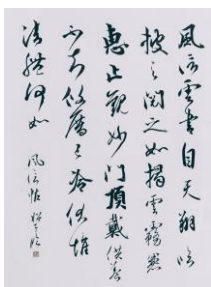 風信雲書自天翔臨
披之閱之如揭雲霧兼
惠止觀妙門頂戴供養
不知攸厝已冷伏惟
法體何如 風信帖